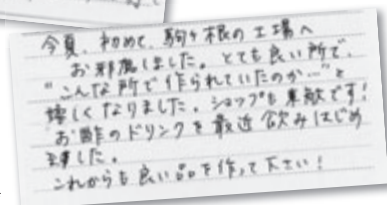 今夏、初めて、駒ヶ根の工場へ
お邪魔しました。とても良い所で、
"こんな所で作られていたのか…"と
嬉しくなりました。ショップも素敵です!
お酢のドリンクを最近飲みはじめ
ました。
これからも良い品を作って下さい!